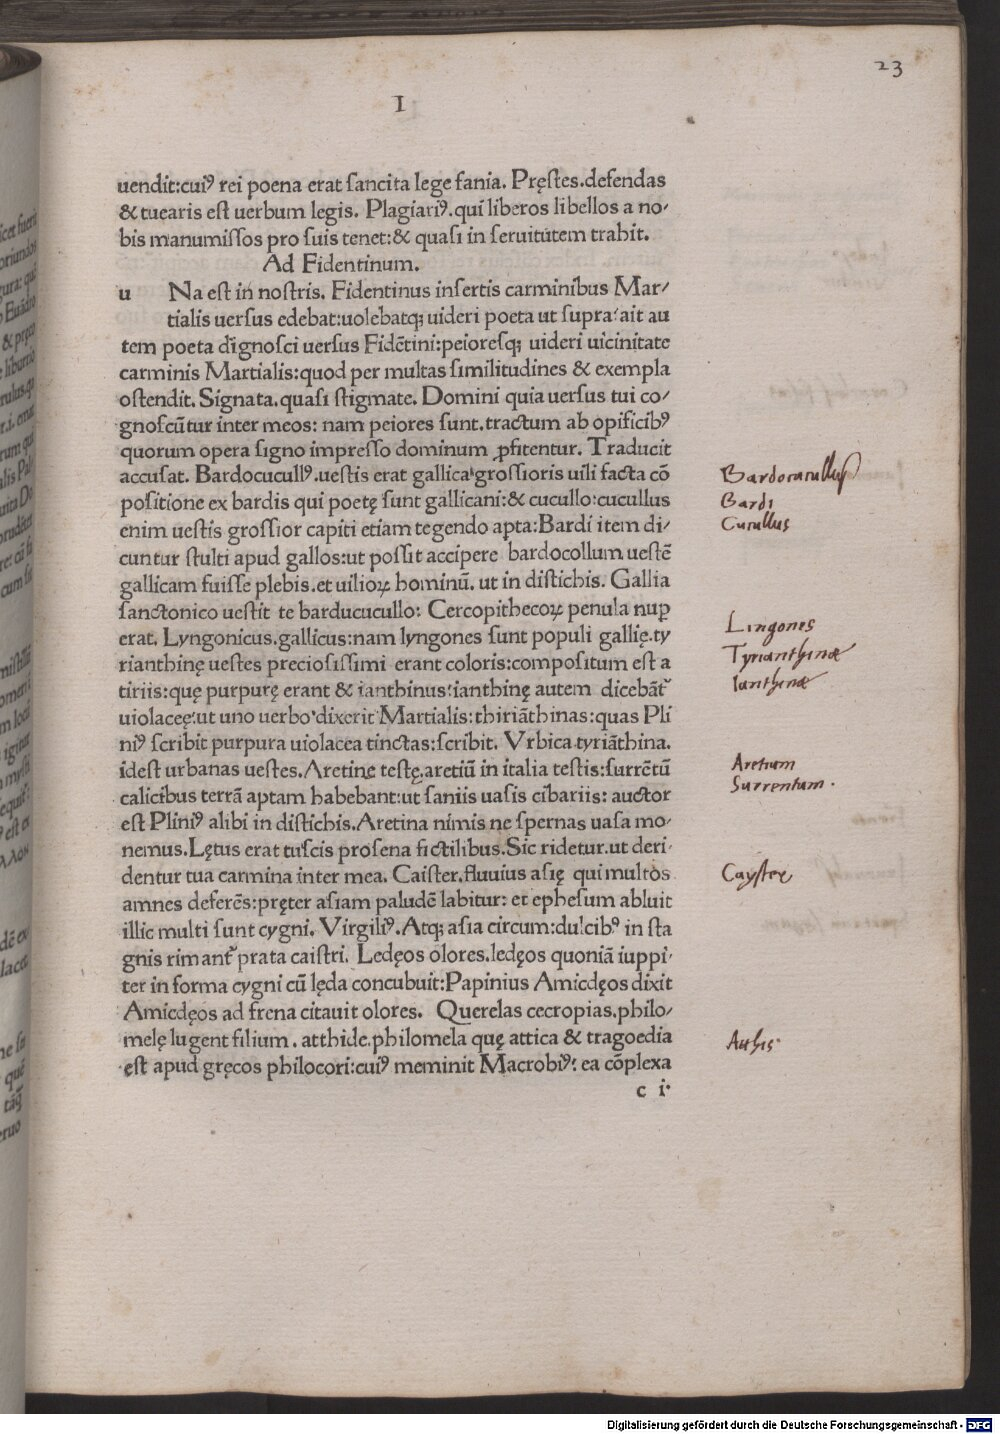 23
I
uendit:cuiꝰ rei poena erat sancita lege fania. Pręstes.defendas
& tuearis est uerbum legis. Plagiariꝰ.qui liberos libellos a no-
bis manumissos pro suis tenet:& quasi in seruitutem trahit.
Ad Fidentinum.
u Na est in nostris. Fidentinus insertis carminibus Mar-
tialis uersus edebat:uolebatqꝫ uideri poeta ut supra:ait au
tem poeta dignosci uersus Fidẽtini:peioresqꝫ uideri uicinitate
carminis Martialis:quod per multas similitudines & exempla
ostendit. Signata.quasi stigmate. Domini quia uersus tui co-
gnoscũtur inter meos: nam peiores sunt.tractum ab opificibꝰ
quorum opera signo impresso dominum ꝓfitentur. Traducit
accusat. Bardocucullꝰ.uestis erat gallica grossioris uili facta cõ
positione ex bardis qui poetę sunt gallicani:& cucullo:cucullus
enim uestis grossior capiti etiam tegendo apta:Bardi item di-
cuntur stulti apud gallos:ut possit accipere bardocollum uestẽ
gallicam fuisse plebis.et uilioꝝ hominũ. ut in distichis. Gallia
sanctonico uestit te barducucullo: Cercopithecoꝝ penula nuꝑ
erat. Lyngonicus.gallicus:nam lyngones sunt populi gallię.ty
rianthinę uestes preciosissimi erant coloris:compositum est a
tiriis:quę purpurę erant & ianthinus:ianthinę autem dicebãt᷑
uiolaceę:ut uno uerbo dixerit Martialis:thiriãthinas:quas Pli
niꝰ scribit purpura uiolacea tinctas:scribit. Vrbica tyriãthina.
idest urbanas uestes.Aretine testę.aretiũ in italia testis:surrẽtũ
calicibus terrã aptam habebant:ut saniis uasis cibariis: auctor
est Pliniꝰ alibi in distichis.Aretina nimis ne spernas uasa mo-
nemus.Lętus erat tuscis prosena fictilibus.Sic ridetur.ut deri-
dentur tua carmina inter mea. Caister.fluuius asię qui multos
amnes deferẽs:pręter asiam paludẽ labitur: et ephesum abluit
illic multi sunt cygni. Virgiliꝰ.Atqꝫ asia circum:dulcibꝰ in sta
gnis rimant᷑ prata caistri. Ledęos olores.ledęos quoniã iuppi-
ter in forma cygni cũ lęda concubuit:Papinius Amicdęos dixit
Amicdęos ad frena citauit olores. Querelas cecropias.philo-
melę lugent filium. atthide.philomela quę attica & tragoedia
est apud gręcos philocori:cuiꝰ meminit Macrobiꝰ: ea cõplexa
c i
Bardocucullus
Bardi
Cucullus
Lingones
Tyrianthinæ
Ianthinæ
Aretium
Surrentum.
Caystre
Atthis
Digitalisierung gefördert durch die Deutsche Forschungsgemeinschaft - DFG